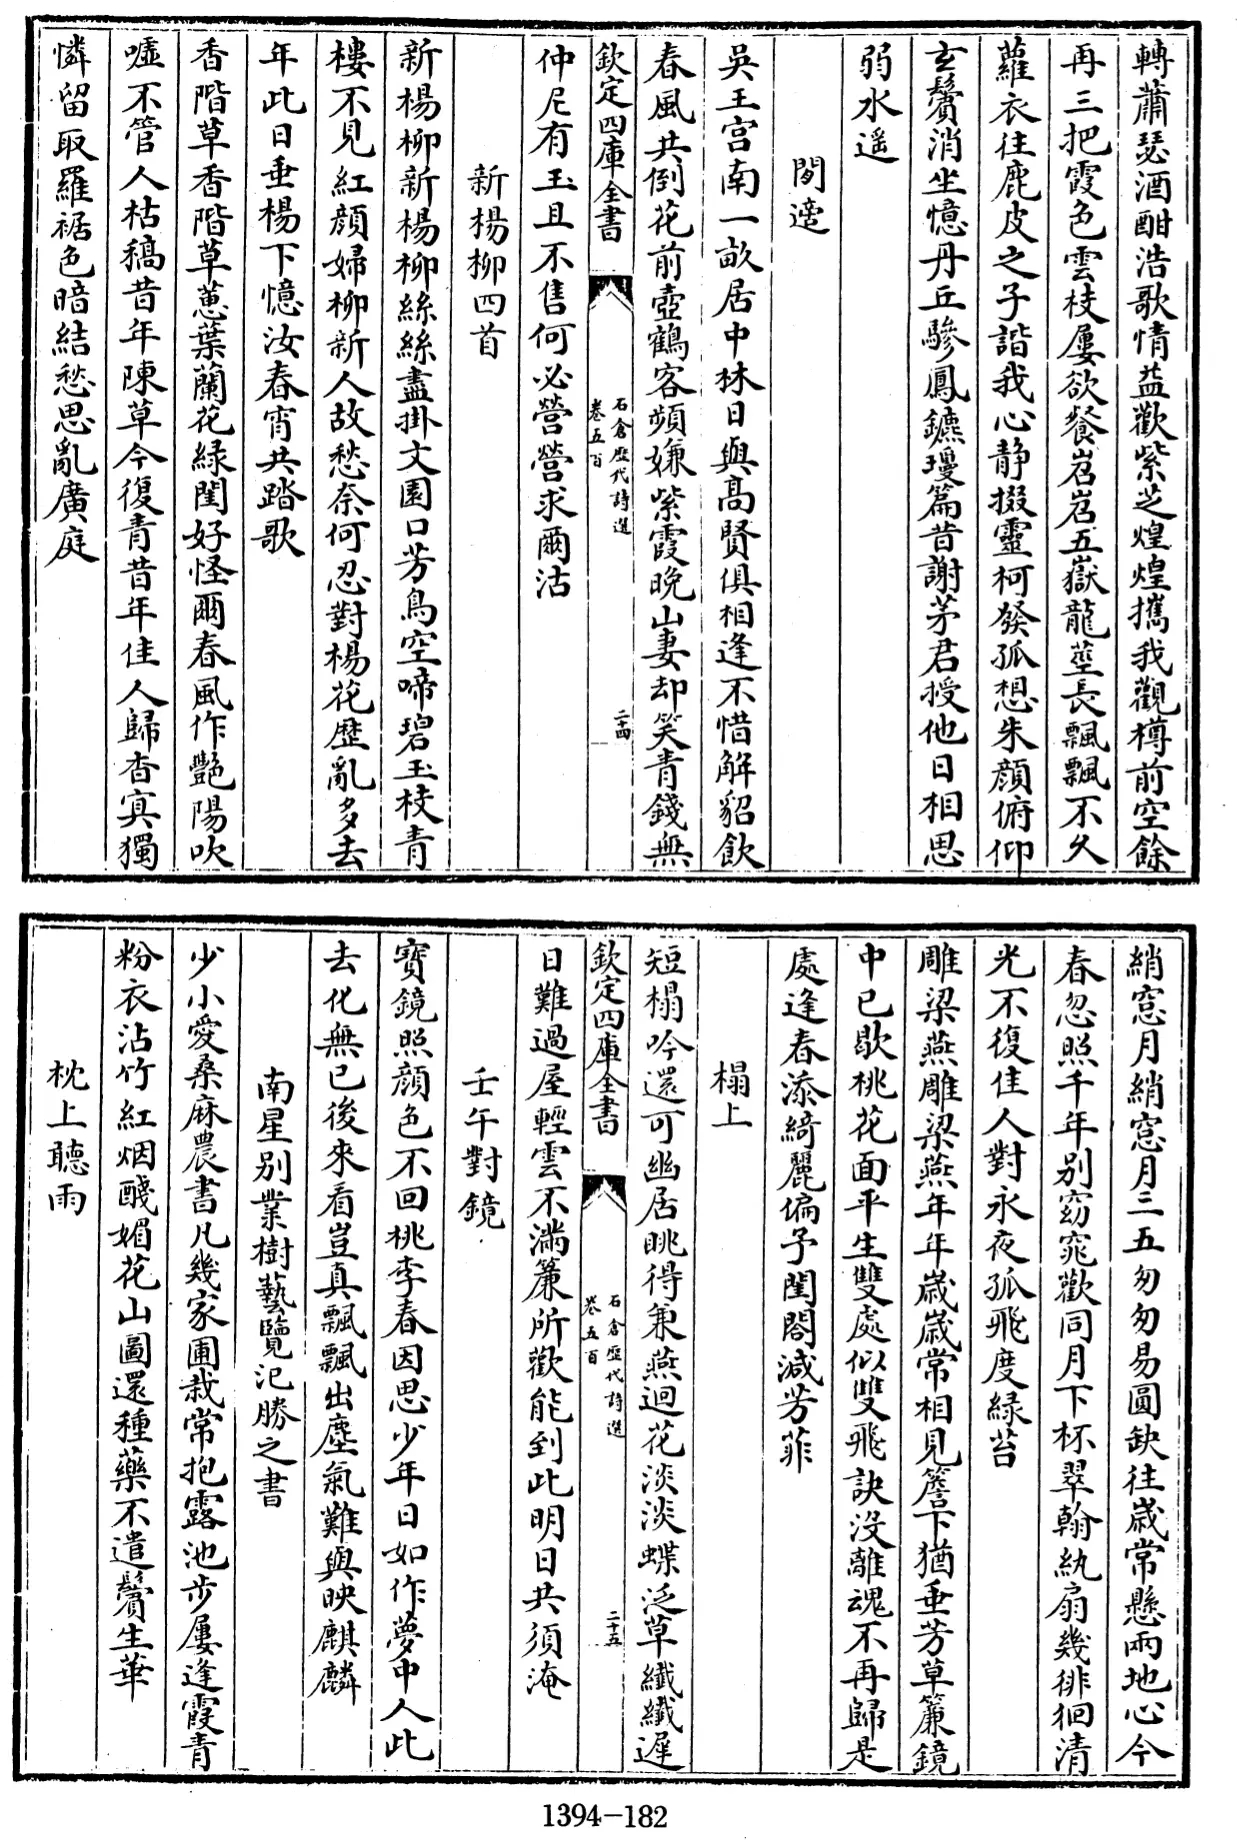 轉蕭瑟酒酣浩歌情益歡紫芝煌煌攜我觀樽前空餘
再三把霞色雲枝屢欲餐岧岧五嶽龍莖長飄飄不久
蘿衣往鹿皮之子諧我心靜掇靈柯發孤想朱顔俯仰
玄鬢消坐憶丹丘驂鳳鑣瓊篇昔謝茅君授他日相思
弱水遥
閒適
吳王宫南一畝居中林日與髙賢俱相逢不惜解貂飲
春風共倒花前壺鶴客頻嫌紫霞晩山妻却笑青錢無
欽定四庫全書
石倉歴代詩選
卷五百
二十四
仲尼有玉且不售何必營營求爾沽
新楊柳四首
新楊柳新楊柳絲絲盡掛文園口芳鳥空啼碧玉枝青
樓不見紅顔婦柳新人故愁奈何忍對楊花歴亂多去
年此日垂楊下憶汝春宵共踏歌
香階草香階草蕙葉蘭花緑閨好怪爾春風作艷陽吹
噓不管人枯稿昔年陳草今復青昔年佳人歸杳冥獨
憐留取羅裾色暗結愁思亂廣庭
綃窓月綃窓月三五匆匆易圓缺往歲常懸兩地心今
春忽照千年别窈窕歡同月下杯翠翰紈扇幾徘徊清
光不復佳人對永夜孤飛度緑苔
雕梁燕雕梁燕年年歲歲常相見簷下猶垂芳草簾鏡
中已歇桃花面平生雙處似雙飛訣没離魂不再歸是
處逢春添綺麗偏予閨閣減芳菲
榻上
短榻吟還可幽居眺得兼燕迴花淡淡蝶泛草纖纖遲
欽定四庫全書
石倉歴代詩選
卷五百
二十五
日難過屋輕雲不滿簾所歡能到此明日共須淹
壬午對鏡
寳鏡照顔色不回桃李春因思少年日如作夢中人此
去化無已後來看豈真飄飄出塵氣難與映麒麟
南星别業樹藝覽氾勝之書
少小愛桑麻農書凡幾家圃栽常抱露池步屢逢霞青
粉衣沾竹紅烟醆媚花山圖還種藥不遣鬢生華
枕上聽雨
1394-182